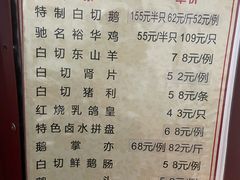 特制白切鹅 155元半只82元/斤52元/例
驰名裕华鸡 55元半只 109元/只
白切东山羊 78元/例
白切肾片 58元/例
白切猪利 58元/条
红烧乳鸽皇 43元/只
特色卤水拼盘 68元/例
鹅掌亦 68元/例82元/斤
白切鲜鹅肠 58元/例